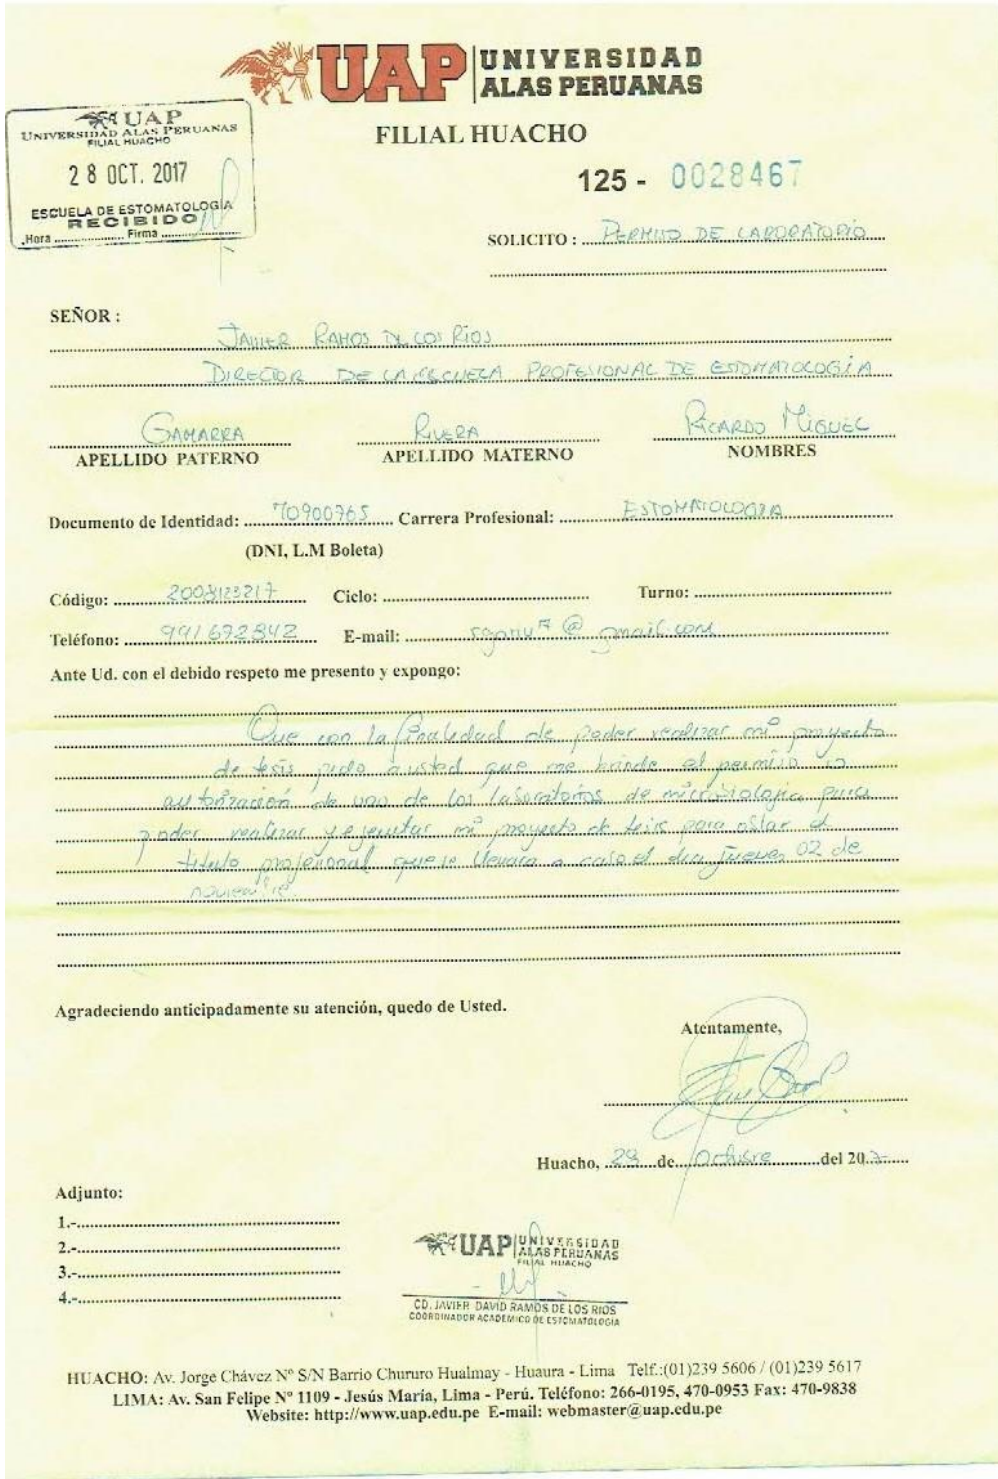 UAP UNIVERSIDAD
ALAS PERUANAS
FILIAL HUACHO
UAP
UNIVERSIDAD ALAS PERUANAS
FILIAL HUACHO
28 OCT. 2017
ESCUELA DE ESTOMATOLOGÍA
RECIBIDO
Hora ........ Firma ........
125 - 0028467
SOLICITO : PERMISO DE LABORATORIO
SEÑOR :
JAVIER RAMOS DE LOS RÍOS
DIRECTOR DE LA ESCUELA PROFESIONAL DE ESTOMATOLOGÍA
GAMARRA RIVERA RICARDO MIGUEL
APELLIDO PATERNO APELLIDO MATERNO NOMBRES
Documento de Identidad: 70900765 Carrera Profesional: ESTOMATOLOGIA
(DNI, L.M Boleta)
Código: 2008123217 Ciclo: ........ Turno: ........
Teléfono: 991692842 E-mail: @ gmail.com
Ante Ud. con el debido respeto me presento y expongo:
Que con la finalidad de poder realizar mi proyecto
de tesis pido a usted que me brinde el permiso
autorización de uso de los laboratorios de microbiologia para
poder realizar y ejecutar mi proyecto de tesis para el
titulo profesional que se llevara a cabo el dia jueves 02 de
noviembre.
Agradeciendo anticipadamente su atención, quedo de Usted.
Atentamente,
Huacho, 28 de Octubre del 20
Adjunto:
1.-
2.-
3.-
4.-
UAP UNIVERSIDAD
ALAS PERUANAS
FILIAL HUACHO
CD. JAVIER DAVID RAMOS DE LOS RIOS
COORDINADOR ACADEMICO DE ESTOMATOLOGIA
HUACHO: Av. Jorge Chávez Nº S/N Barrio Chururo Hualmay - Huaura - Lima Telf.:(01)239 5606 / (01)239 5617
LIMA: Av. San Felipe Nº 1109 - Jesús María, Lima - Perú. Teléfono: 266-0195, 470-0953 Fax: 470-9838
Website: http://www.uap.edu.pe E-mail: webmaster@uap.edu.pe